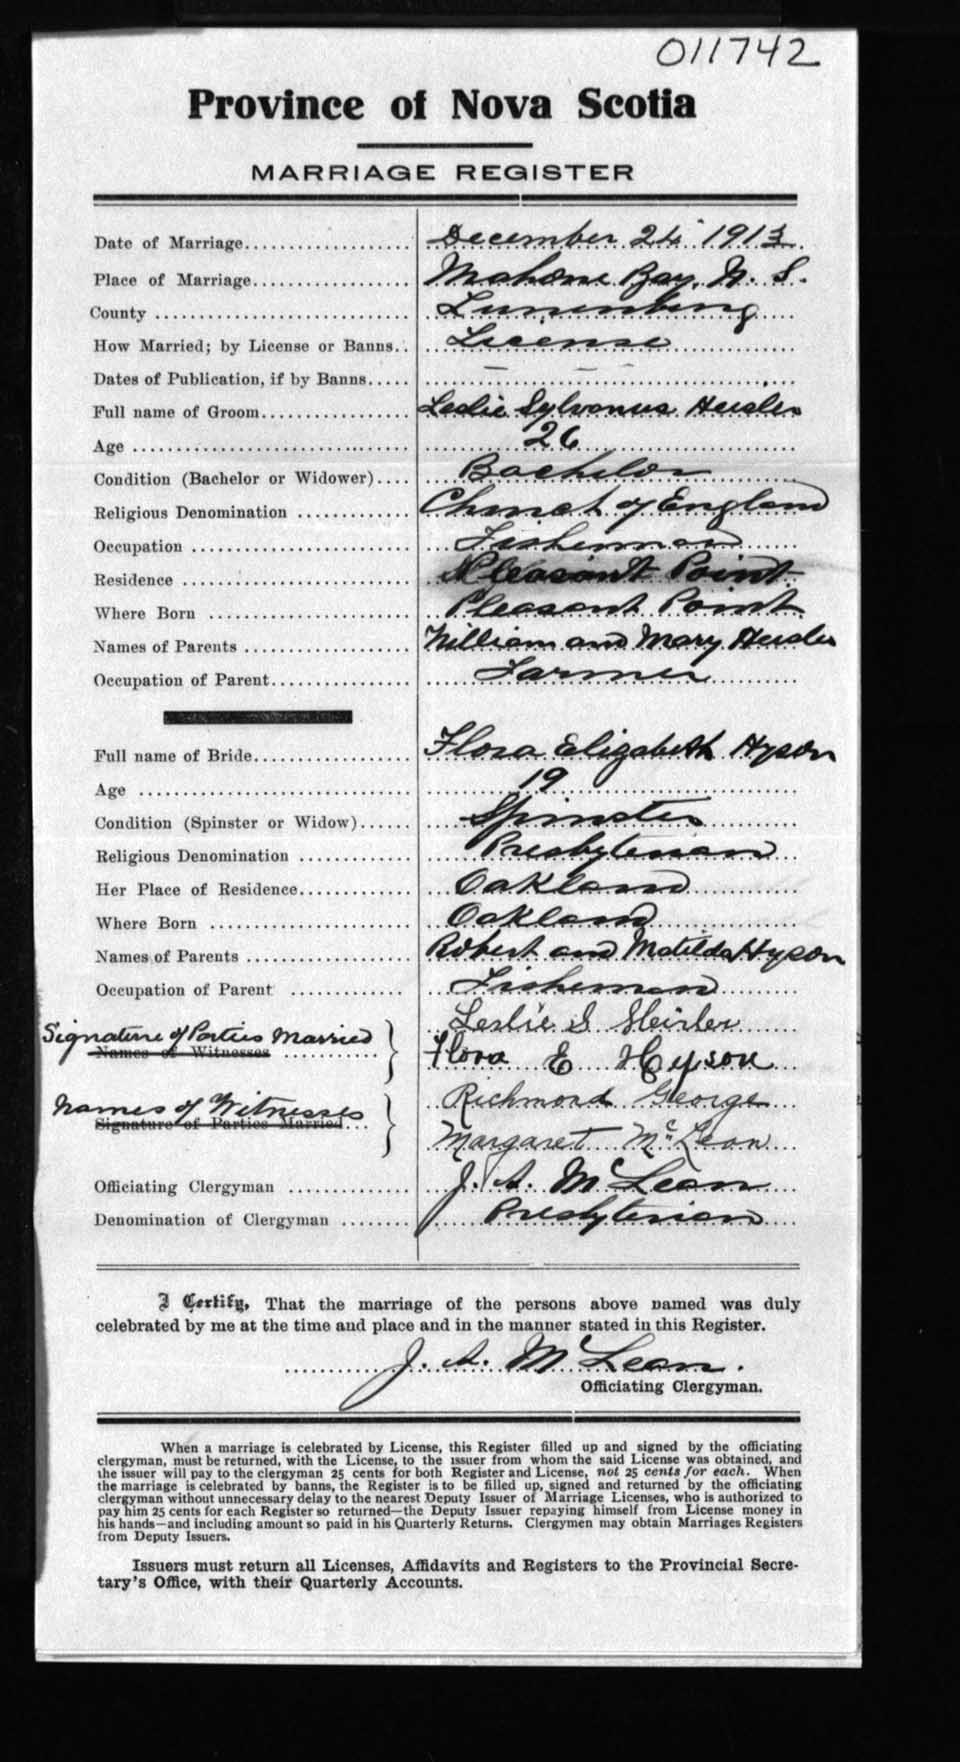 011742
Province of Nova Scotia
MARRIAGE REGISTER
Date of Marriage.................. December 24" 1913
Place of Marriage.................. Mahone Bay, N. S.
County .................. Lunenburg
How Married; by License or Banns.. License
Dates of Publication, if by Banns..... — — —
Full name of Groom.................. Leslie Sylvanus Heisler
Age .................. 26
Condition (Bachelor or Widower).... Bachelor
Religious Denomination ............ Church of England
Occupation .................. Fisherman
Residence .................. Pleasant Point
Where Born .................. Pleasant Point
Names of Parents .................. William and Mary Heisler
Occupation of Parent.................. Farmer
Full name of Bride.................. Flora Elizabeth Hyson
Age .................. 19
Condition (Spinster or Widow)...... Spinster
Religious Denomination ............ Presbyterian
Her Place of Residence............ Oakland
Where Born .................. Oakland
Names of Parents .................. Robert and Matilda Hyson
Occupation of Parent ............ Fisherman
Signature of Parties Married } Leslie S Heisler
Names of Witnesses ............ Flora E Hyson
Names of Witnesses } Richmond George
Signature of Parties Married... Margaret McLean
Officiating Clergyman ............ J. A. McLean
Denomination of Clergyman ........ Presbyterian
I Certify, That the marriage of the persons above named was duly
celebrated by me at the time and place and in the manner stated in this Register.
J. A. McLean.
Officiating Clergyman.
When a marriage is celebrated by License, this Register filled up and signed by the officiating
clergyman, must be returned, with the License, to the issuer from whom the said License was obtained, and
the issuer will pay to the clergyman 25 cents for both Register and License, not 25 cents for each. When
the marriage is celebrated by banns, the Register is to be filled up, signed and returned by the officiating
clergyman without unnecessary delay to the nearest Deputy Issuer of Marriage Licenses, who is authorized to
pay him 25 cents for each Register so returned—the Deputy Issuer repaying himself from License money in
his hands—and including amount so paid in his Quarterly Returns. Clergymen may obtain Marriages Registers
from Deputy Issuers.
Issuers must return all Licenses, Affidavits and Registers to the Provincial Secre-
tary's Office, with their Quarterly Accounts.